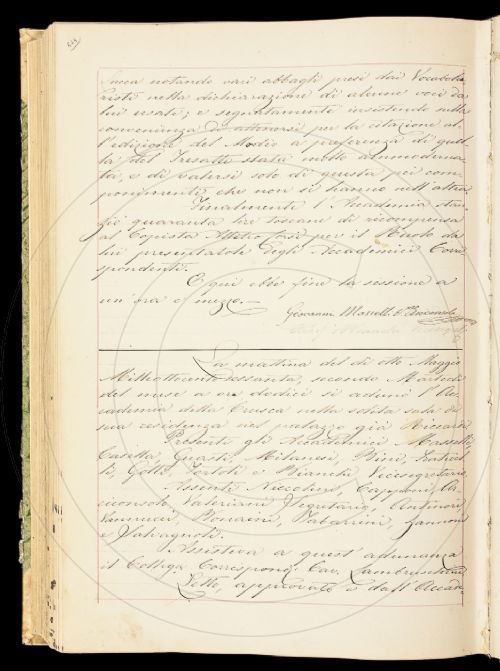 Sacca notando vari abbagli presi dai Vocabola-
risti nella dichiarazione di alcune voci da
lui usate; e segnatamente insistendo sulla
convenienza di attenersi per la citazione al-
l'edizione del Modio a preferenza di quel-
la del Tresatti stata molto ammoderna-
ta, e di valersi solo di questa pei com-
ponimenti che non si hanno nell'altra.
Finalmente l'Accademia
quaranta lire toscane di ricompensa
al Copista per il Ruolo da
lui presentatole degli Accademici Corri-
spondenti.
E qui ebbe fine la sessione a
un'ora e mezzo. —
Giovanni Masselli
La mattina del dì otto Maggio
Milleottocentosessanta, secondo Martedì
del mese a ore dodici si adunò l'Ac-
cademia della Crusca nella solita sala di
sua residenza nel palazzo già Riccardi
Presenti gli Accademici Masselli,
Casella, Guasti, Milanesi, Bini,
Tortoli e Bianchi Vicesegretario.
Assenti Niccolini, Capponi, Ar-
ciconsolo, Valeriani Segretario, Antinori,
Vannucci, Bonaini, Tabarrini, Zannoni
e Salvagnoli.
Assisteva a quest'adunanza
il Collega Corrispond. Cav. Lambruschini
Letto, approvato e dall'Accad-